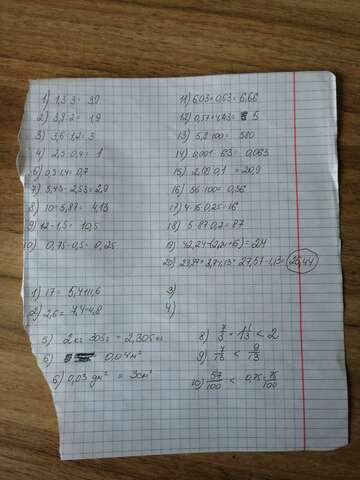 1) 1,3·3= 3,9
2) 3,8:2= 1,9
3) 3,6:1,2=3
4) 2,5·0,4= 1
6) 0,5·1,4= 0,7
7) 5,43-2,53=2,9
8) 10-5,87= 4,13
9) 12-1,5= 10,5
10) 0,75-0,5= 0,25
11) 6,03+0,63=6,66
12) 0,57+4,43= 5
13) 5,8·100= 580
14) 0,001·63= 0,063
15) 2,09:0,1=20,9
16) 56:100=0,56
17) 4:0,25=16
18) 5·87·0,2=87
19) 42,24-(2,24+16)=24
1) 17= 5,4+11,6
2) 2,6= 7,4-4,8
3)
4)
5) 2 кг 305г = 2,305кг
6) 0,04м²
6) 0,03 дм² = 3см²
8) 7/3 + 1 1/3 < 2
9) 7/15 < 9/13
10) 57/100 < 0,75=75/100